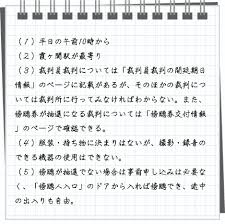 （１）平日の午前10時から
（２）霞ヶ関駅が最寄り
（３）裁判員裁判については「裁判員裁判の開廷期日
情報」のページに記載があるが、そのほかの裁判につ
いては裁判所に行ってみなければわからない。また、
傍聴券が抽選になる裁判については「傍聴券交付情報
」のページで確認できる。
（４）服装・持ち物に決まりはないが、撮影・録音の
できる機器の使用はできない。
（５）傍聴が抽選でない場合は事前申し込みは必要な
く、「傍聴人入口」のドアから入れば傍聴でき、途中
の出入りも自由。